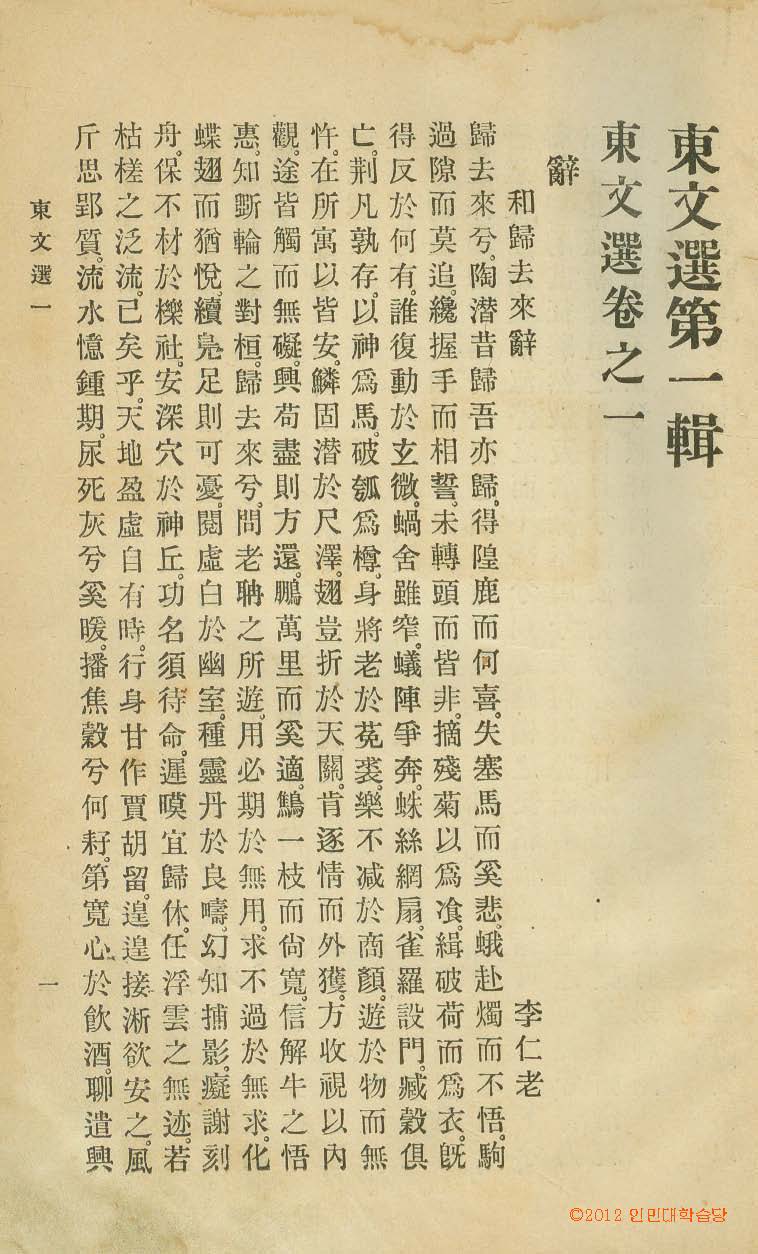 東文選第一輯
東文選卷之一
辭
和歸去來辭 李仁老
歸去來兮。陶潛昔歸吾亦歸。得隍鹿而何喜。失塞馬而奚悲。蛾赴燭而不悟。駒
過隙而莫追。纔握手而相誓。未轉頭而皆非。摘殘菊以爲飡。緝破荷而爲衣。旣
得反於何有。誰復動於玄微。蝸舍雖窄。蟻陣爭奔。蛛絲網扇。雀羅設門。臧穀俱
亡。荆凡孰存。以神爲馬。破瓠爲樽。身將老於菟裘。樂不减於商顏。遊於物而無
忤。在所寓以皆安。鱗固潛於尺澤。翅豈折於天關。肯逐情而外獲。方收視以內
觀。途皆觸而無礙。興苟盡則方還。鵬萬里而奚適。鷦一枝而尙寬。信解牛之悟
惠。知斲輪之對桓。歸去來兮。問老聃之所遊。用必期於無用。求不過於無求。化
蝶翅而猶悅。續鳧足則可憂。閱虛白於幽室。種靈丹於良疇。幻知捕影。癡謝刻
舟。保不材於櫟社。安深穴於神丘。功名須待命。遲暯宜歸休。任浮雲之無迹。若
枯槎之泛流。已矣乎。天地盈虛自有時。行身甘作賈胡留。遑遑接淅欲安之。風
斤思郢質。流水憶鍾期。尿死灰兮奚暖。播焦穀兮何耔。第寬心於飮酒。聊遣興
東文選一
一
©2012 인민대학습당